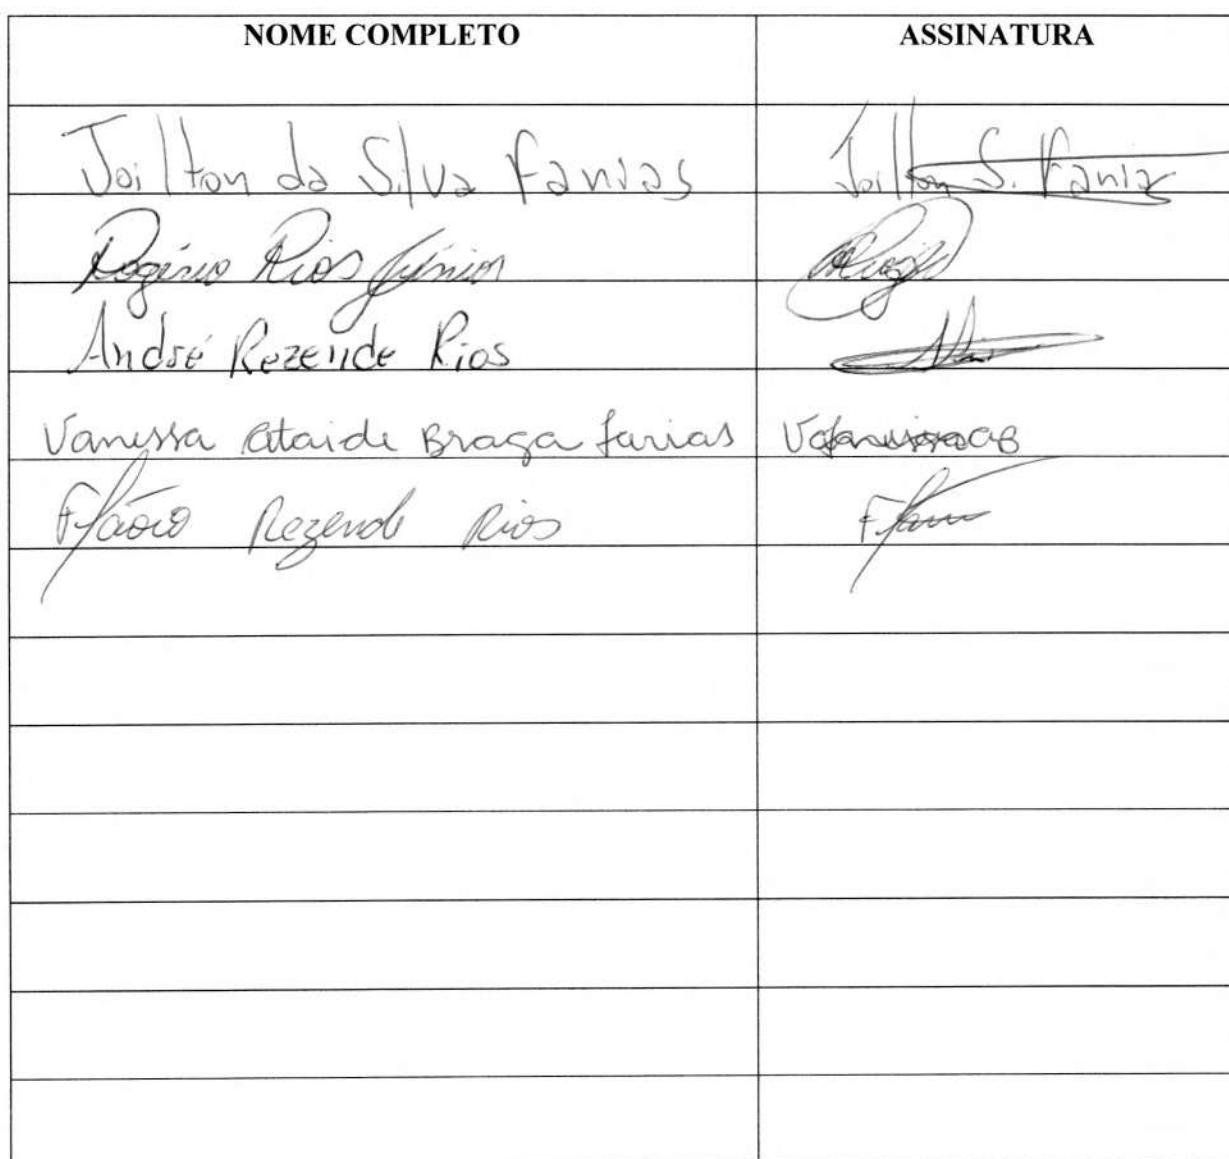 NOME COMPLETO ASSINATURA
Joilton da Silva Farias Joilton S. Farias
Rogério Rios Júnior
André Rezende Rios
Vanessa Ataide Braga Farias
Flávio Rezende Rios